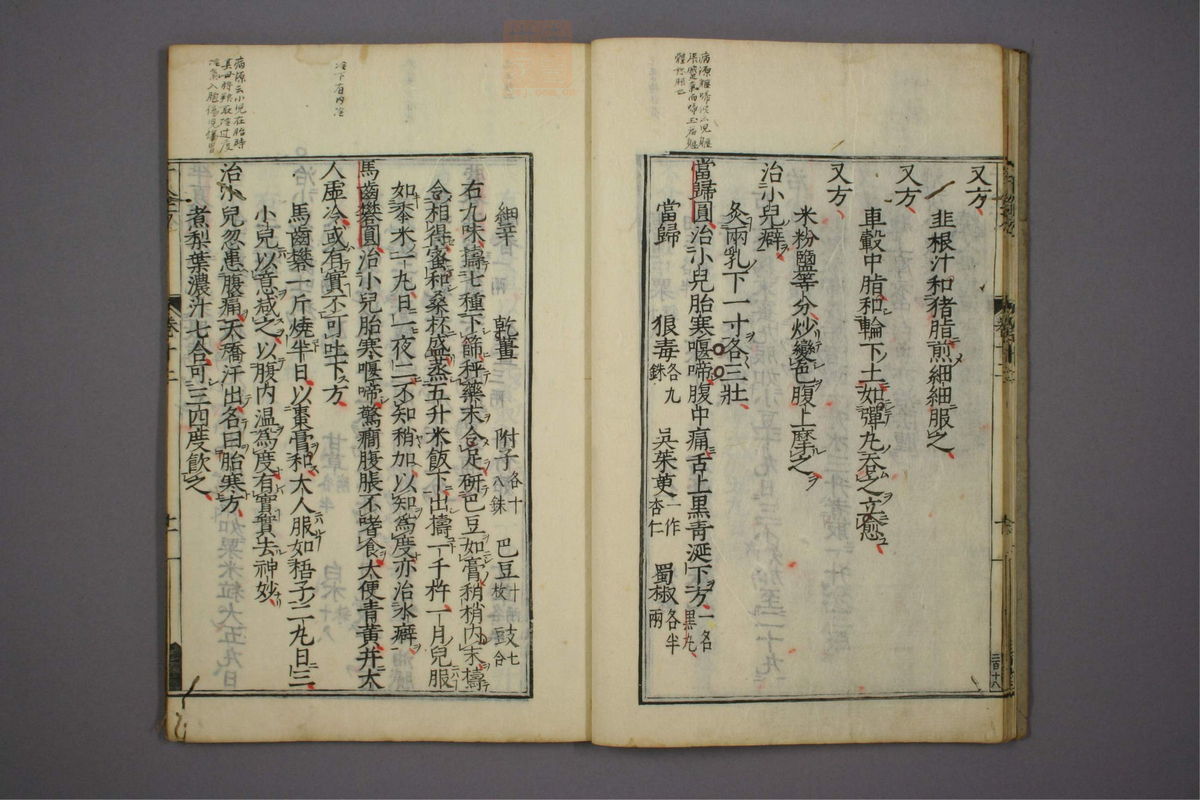 又方
韭根汁和猪脂煎細細服之
又方
車轂中脂和輪下土如彈丸吞之立愈
又方
米粉鹽等分炒變色腹上摩之
治小兒癖
灸兩乳下一寸各三壯
當歸圓治小兒胎寒喔啼腹中痛舌上黑青涎下方一名黑丸
當歸 狼毒各九銖 吳茱萸一作杏仁 蜀椒各半兩
細辛 乾薑 附子各十八銖 巴豆十枚 豉七合
右九味擣七種下篩秤藥末令足研巴豆如膏稍稍內末擣
令相得蜜和桑杯盛蒸五升米飯下出擣一千杵一月兒服
如黍米一丸日一夜二不知稍加以知為度亦治水癖
馬齒礬圓治小兒胎寒喔啼驚癎腹脹不嗜食大便青黃并大
人虛冷內冷或有實不可吐下方
馬齒礬一斤燒半日以棗膏和大人服如梧子二丸日三
小兒以意減之以腹內溫為度有實實去神妙
治小兒忽患腹痛夭矯汗出名曰胎寒方
煮梨葉濃汁七合可三四度飲之
冷下有內冷
病源云小兒在胎時
其母將養取冷過度
冷氣入胞傷兒腸胃